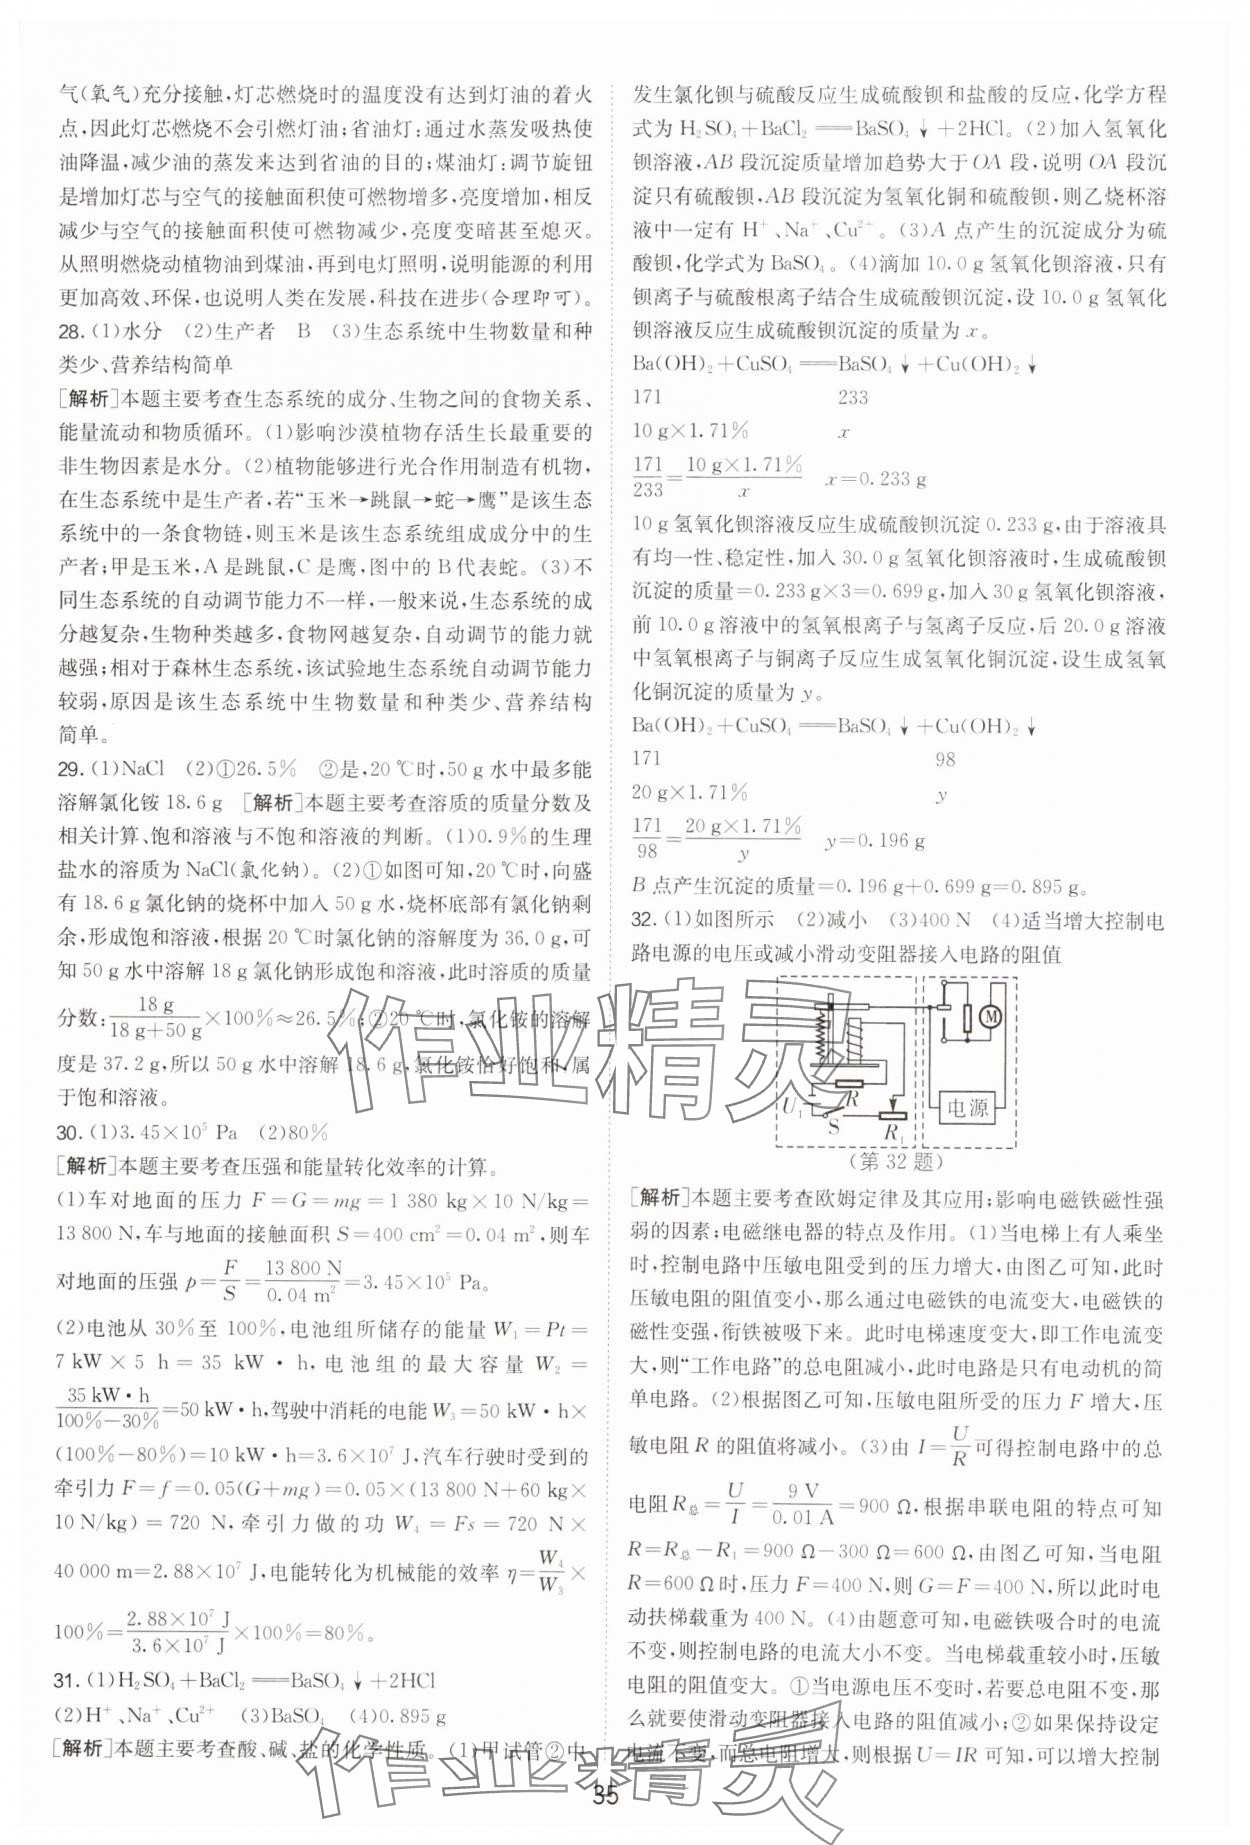 气(氧气)充分接触,灯芯燃烧时的温度没有达到灯油的着火
点,因此灯芯燃烧不会引燃灯油;省油灯:通过水蒸发吸热使
油降温,减少油的蒸发来达到省油的目的;煤油灯:调节旋钮
是增加灯芯与空气的接触面积使可燃物增多,亮度增加,相反
减少与空气的接触面积使可燃物减少,亮度变暗甚至熄灭。
从照明燃烧动植物油到煤油,再到电灯照明,说明能源的利用
更加高效、环保,也说明人类在发展,科技在进步(合理即可)。
28.(1)水分 (2)生产者 B (3)生态系统中生物数量和种
类少、营养结构简单
[解析]本题主要考查生态系统的成分、生物之间的食物关系、
能量流动和物质循环。(1)影响沙漠植物存活生长最重要的
非生物因素是水分。(2)植物能够进行光合作用制造有机物,
在生态系统中是生产者,若“玉米→跳鼠→蛇→鹰”是该生态
系统中的一条食物链,则玉米是该生态系统组成成分中的生
产者;甲是玉米,A是跳鼠,C是鹰,图中的B代表蛇。(3)不
同生态系统的自动调节能力不一样,一般来说,生态系统的成
分越复杂,生物种类越多,食物网越复杂,自动调节的能力就
越强;相对于森林生态系统,该试验地生态系统自动调节能力
较弱,原因是该生态系统中生物数量和种类少、营养结构
简单。
29.(1)NaCl (2)①26.5% ②是,20 ℃时,50 g水中最多能
溶解氯化铵18.6 g [解析]本题主要考查溶质的质量分数及
相关计算、饱和溶液与不饱和溶液的判断。(1)0.9%的生理
盐水的溶质为NaCl(氯化钠)。(2)①如图可知,20 ℃时,向盛
有18.6 g氯化钠的烧杯中加入50 g水,烧杯底部有氯化钠剩
余,形成饱和溶液,根据20 ℃时氯化钠的溶解度为36.0 g,可
知50 g水中溶解18 g氯化钠形成饱和溶液,此时溶质的质量
分数:18 g/(18 g+50 g)×100%≈26.5%;②20 ℃时,氯化铵的溶解
度是37.2 g,所以50 g水中溶解18.6 g,氯化铵恰好饱和,属
于饱和溶液。
30.(1)3.45×10⁵ Pa (2)80%
[解析]本题主要考查压强和能量转化效率的计算。
(1)车对地面的压力F=G=mg=1 380 kg×10 N/kg=
13 800 N,车与地面的接触面积S=400 cm²=0.04 m²,则车
对地面的压强p=F/S=13 800 N/0.04 m²=3.45×10⁵ Pa。
(2)电池从30%至100%,电池组所储存的能量W₁=Pt=
7 kW×5 h=35 kW·h,电池组的最大容量W₂=
35 kW·h/(100%-30%)=50 kW·h,驾驶中消耗的电能W₃=50 kW·h×
(100%-80%)=10 kW·h=3.6×10⁷ J,汽车行驶时受到的
牵引力F=f=0.05(G+mg)=0.05×(13 800 N+60 kg×
10 N/kg)=720 N,牵引力做的功W₄=Fs=720 N×
40 000 m=2.88×10⁷ J,电能转化为机械能的效率η=W₄/W₃×
100%=2.88×10⁷ J/3.6×10⁷ J×100%=80%。
31.(1)H₂SO₄+BaCl₂══BaSO₄↓+2HCl
(2)H⁺、Na⁺、Cu²⁺ (3)BaSO₄ (4)0.895 g
[解析]本题主要考查酸、碱、盐的化学性质。(1)甲试管②中
发生氯化钡与硫酸反应生成硫酸钡和盐酸的反应,化学方程
式为H₂SO₄+BaCl₂══BaSO₄↓+2HCl。(2)加入氢氧化
钡溶液,AB段沉淀质量增加趋势大于OA段,说明OA段沉
淀只有硫酸钡,AB段沉淀为氢氧化铜和硫酸钡,则乙烧杯溶
液中一定有H⁺、Na⁺、Cu²⁺。(3)A点产生的沉淀成分为硫
酸钡,化学式为BaSO₄。(4)滴加10.0 g氢氧化钡溶液,只有
钡离子与硫酸根离子结合生成硫酸钡沉淀,设10.0 g氢氧化
钡溶液反应生成硫酸钡沉淀的质量为x。
Ba(OH)₂+CuSO₄══BaSO₄↓+Cu(OH)₂↓
171 233
10 g×1.71% x
171/233=10 g×1.71%/x x=0.233 g
10 g氢氧化钡溶液反应生成硫酸钡沉淀0.233 g,由于溶液具
有均一性、稳定性,加入30.0 g氢氧化钡溶液时,生成硫酸钡
沉淀的质量=0.233 g×3=0.699 g,加入30 g氢氧化钡溶液,
前10.0 g溶液中的氢氧根离子与氢离子反应,后20.0 g溶液
中氢氧根离子与铜离子反应生成氢氧化铜沉淀,设生成氢氧
化铜沉淀的质量为y。
Ba(OH)₂+CuSO₄══BaSO₄↓+Cu(OH)₂↓
171 98
20 g×1.71% y
171/98=20 g×1.71%/y y=0.196 g
B点产生沉淀的质量=0.196 g+0.699 g=0.895 g。
32.(1)如图所示 (2)减小 (3)400 N (4)适当增大控制电
路电源的电压或减小滑动变阻器接入电路的阻值
M
U₁ R S R₁ 电源
(第32题)
[解析]本题主要考查欧姆定律及其应用;影响电磁铁磁性强
弱的因素;电磁继电器的特点及作用。(1)当电梯上有人乘坐
时,控制电路中压敏电阻受到的压力增大,由图乙可知,此时
压敏电阻的阻值变小,那么通过电磁铁的电流变大,电磁铁的
磁性变强,衔铁被吸下来。此时电梯速度变大,即工作电流变
大,则“工作电路”的总电阻减小,此时电路是只有电动机的简
单电路。(2)根据图乙可知,压敏电阻所受的压力F增大,压
敏电阻R的阻值将减小。(3)由I=U/R可得控制电路中的总
电阻R总=U/I=9 V/0.01 A=900 Ω,根据串联电阻的特点可知
R=R总-R₁=900 Ω-300 Ω=600 Ω,由图乙可知,当电阻
R=600 Ω时,压力F=400 N,则G=F=400 N,所以此时电
动扶梯载重为400 N。(4)由题意可知,电磁铁吸合时的电流
不变,则控制电路的电流大小不变。当电梯载重较小时,压敏
电阻的阻值变大。①当电源电压不变时,若要总电阻不变,那
么就要使滑动变阻器接入电路的阻值减小;②如果保持设定
电流不变,而总电阻增大,则根据U=IR可知,可以增大控制
35
作业精灵
作业精灵